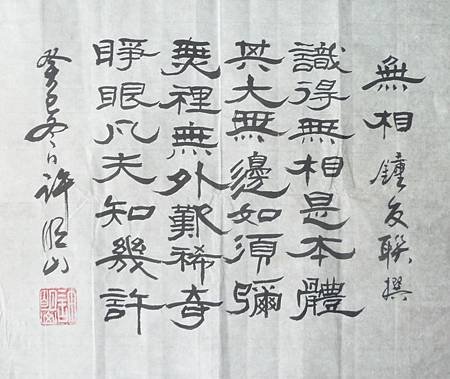 無相 鐘友聯撰
識得無相是本體
其大無邊如須彌
無裡無外歎稀奇
睜眼凡夫知幾許
癸巳冬日許明山